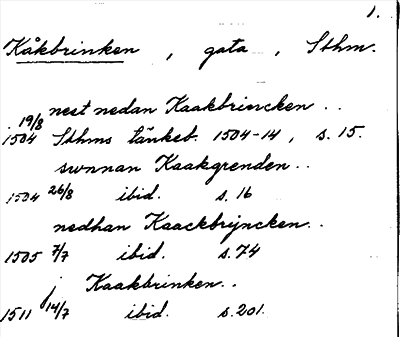 1.
Kåkbrinken, gata, Sthm.
nest nedan Kaakbrincken..
19/8
1504 Sthms tänkeb. 1504-14, s. 15.
swnnan Kaakgrenden..
1504 26/8 ibid. s. 16
nedhan Kaackbrijncken..
1505 7/7 ibid. s. 74
j Kaakbrinken..
1511 14/7 ibid. s. 201.